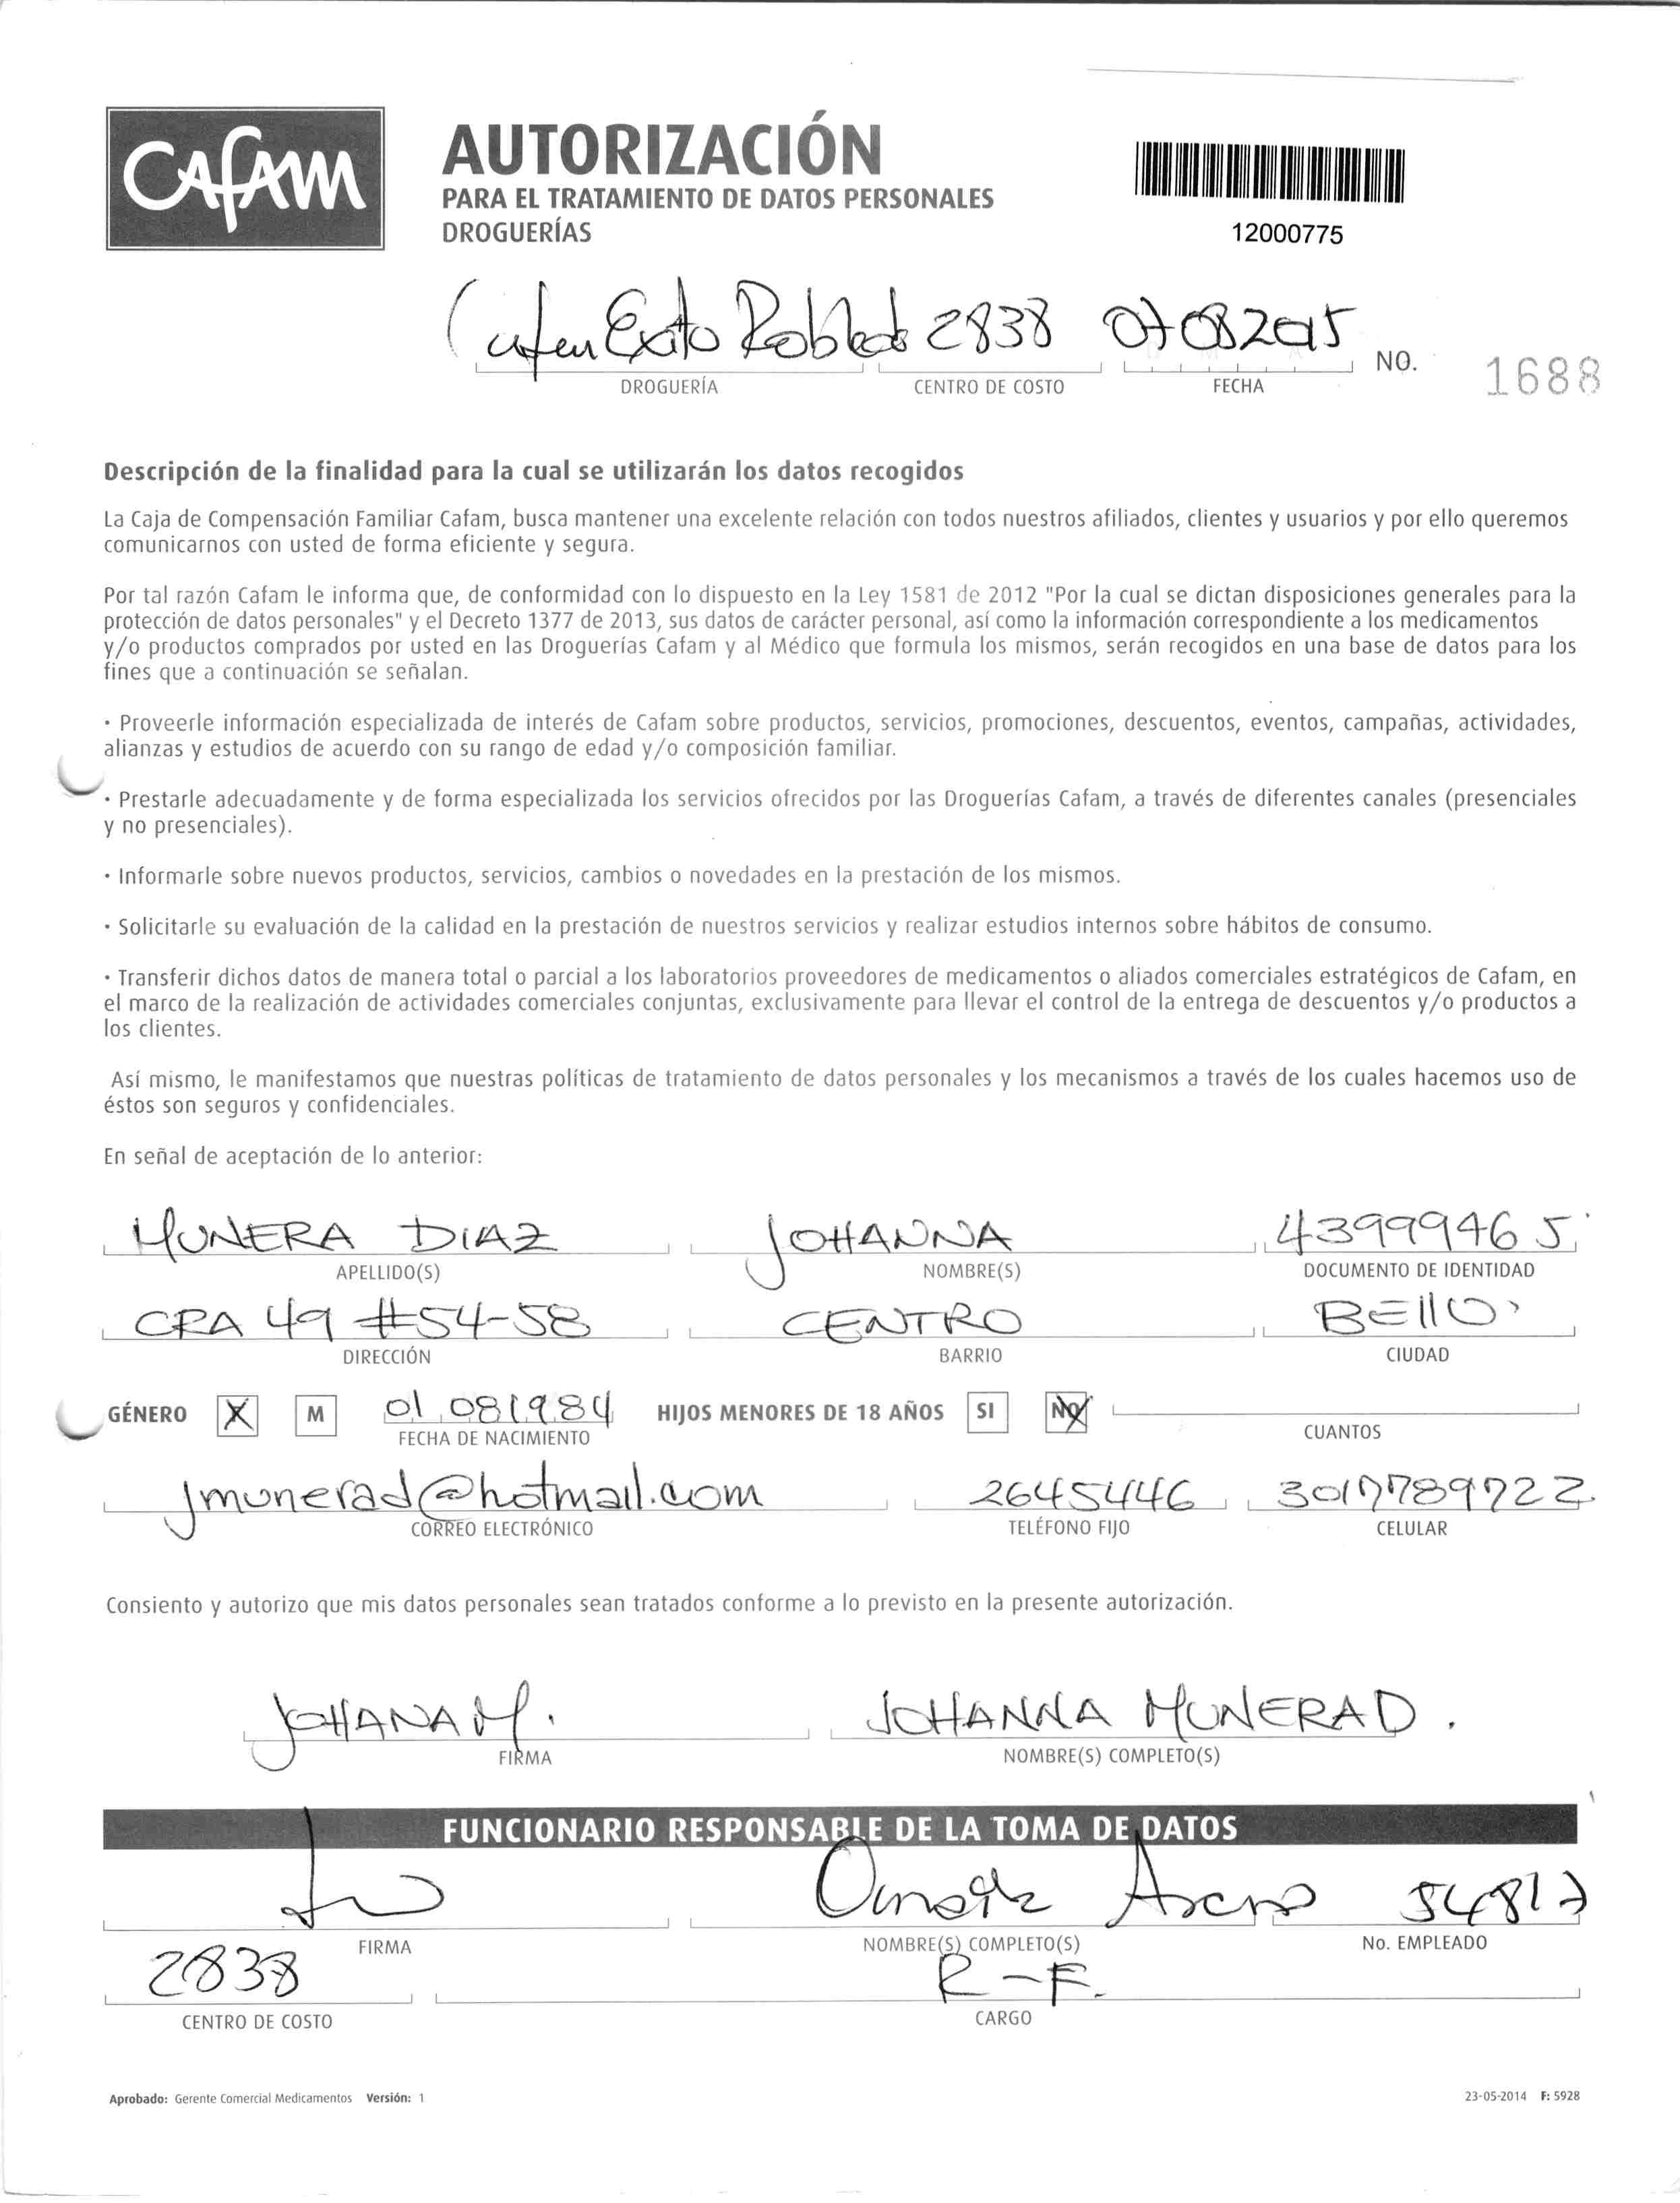 Cafam
AUTORIZACIÓN
PARA EL TRATAMIENTO DE DATOS PERSONALES
DROGUERÍAS
12000775
Exito Robledo 2838 07082015
DROGUERÍA CENTRO DE COSTO FECHA NO. 1688
Descripción de la finalidad para la cual se utilizarán los datos recogidos
La Caja de Compensación Familiar Cafam, busca mantener una excelente relación con todos nuestros afiliados, clientes y usuarios y por ello queremos
comunicarnos con usted de forma eficiente y segura.
Por tal razón Cafam le informa que, de conformidad con lo dispuesto en la Ley 1581 de 2012 "Por la cual se dictan disposiciones generales para la
protección de datos personales" y el Decreto 1377 de 2013, sus datos de carácter personal, así como la información correspondiente a los medicamentos
y/o productos comprados por usted en las Droguerías Cafam y al Médico que formula los mismos, serán recogidos en una base de datos para los
fines que a continuación se señalan.
· Proveerle información especializada de interés de Cafam sobre productos, servicios, promociones, descuentos, eventos, campañas, actividades,
alianzas y estudios de acuerdo con su rango de edad y/o composición familiar.
· Prestarle adecuadamente y de forma especializada los servicios ofrecidos por las Droguerías Cafam, a través de diferentes canales (presenciales
y no presenciales).
· Informarle sobre nuevos productos, servicios, cambios o novedades en la prestación de los mismos.
· Solicitarle su evaluación de la calidad en la prestación de nuestros servicios y realizar estudios internos sobre hábitos de consumo.
· Transferir dichos datos de manera total o parcial a los laboratorios proveedores de medicamentos o aliados comerciales estratégicos de Cafam, en
el marco de la realización de actividades comerciales conjuntas, exclusivamente para llevar el control de la entrega de descuentos y/o productos a
los clientes.
Así mismo, le manifestamos que nuestras políticas de tratamiento de datos personales y los mecanismos a través de los cuales hacemos uso de
éstos son seguros y confidenciales.
En señal de aceptación de lo anterior:
MUNERA DIAZ JOHANNA 43999465
APELLIDO(S) NOMBRE(S) DOCUMENTO DE IDENTIDAD
CRA 49 #54-58 CENTRO BEllO
DIRECCIÓN BARRIO CIUDAD
GÉNERO X M 01 08 1984 HIJOS MENORES DE 18 AÑOS SI NO X
FECHA DE NACIMIENTO CUANTOS
jmunerad@hotmail.com 2645446 3017789722
CORREO ELECTRÓNICO TELÉFONO FIJO CELULAR
Consiento y autorizo que mis datos personales sean tratados conforme a lo previsto en la presente autorización.
JOHANA M. JOHANNA MUNERA D.
FIRMA NOMBRE(S) COMPLETO(S)
FUNCIONARIO RESPONSABLE DE LA TOMA DE DATOS
54817
FIRMA NOMBRE(S) COMPLETO(S) No. EMPLEADO
2838 R-F.
CENTRO DE COSTO CARGO
Aprobado: Gerente Comercial Medicamentos Versión: 1 23-05-2014 F: 5928